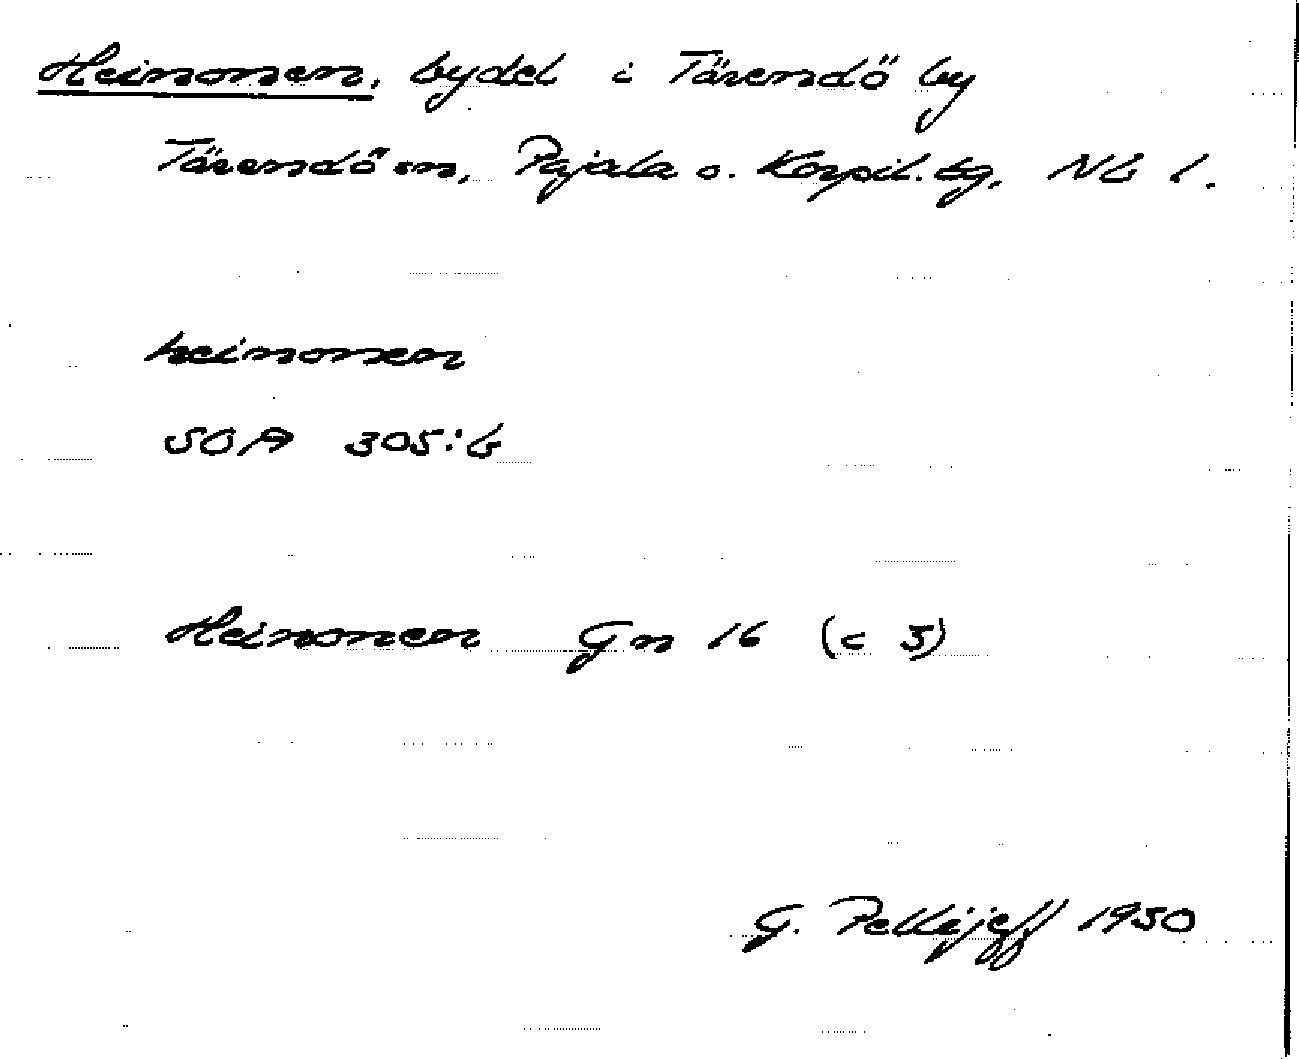 Heinonen, bydel i Tärendö by
Tärendö sn, Pajala o. Korpil. tg, Nb l.
heinonen
SOA 305:6
Heinonen Gn 16 (c 5)
G. Pellijeff 1950